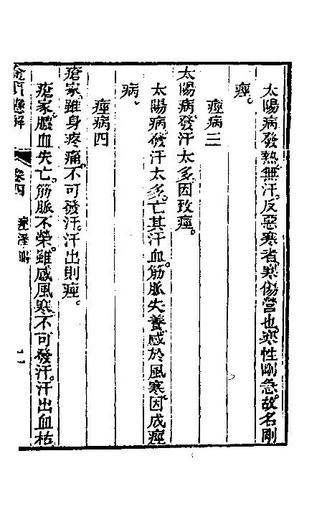 太陽病發熱無汗反惡寒者寒傷營也寒性剛急故名剛
痙
痙病三
太陽病發汗太多因致痙
太陽病發汗太多亡其汗血筋脈失養感於風寒因成痙
病
痙病四
瘡家雖身疼痛不可發汗汗出則痙
瘡家膿血失亡筋脈不榮雖感風寒不可發汗汗出血枯
金匱懸解 卷四 痙濕暍